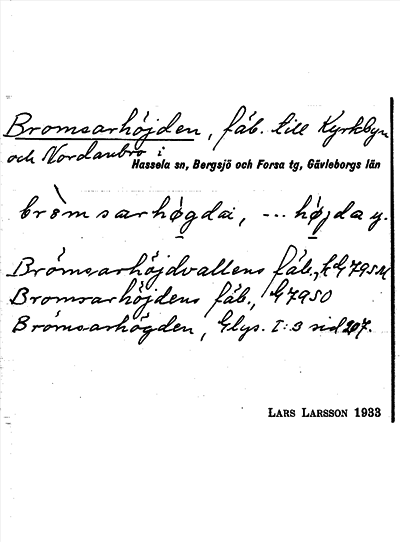 Bromsarhöjden, fäb. till Kyrkbyn
och Nordanbro i
Hassela sn, Bergsjö och Forsa tg, Gävleborgs län
bròmsarhøgdai, --- højda y.
Brömsarhöjdvallens fäb., k G795M
Bromsarhöjdens fäb., G7950
Brömsarhögden, Glys. I:3 sid 207.
LARS LARSSON 1933